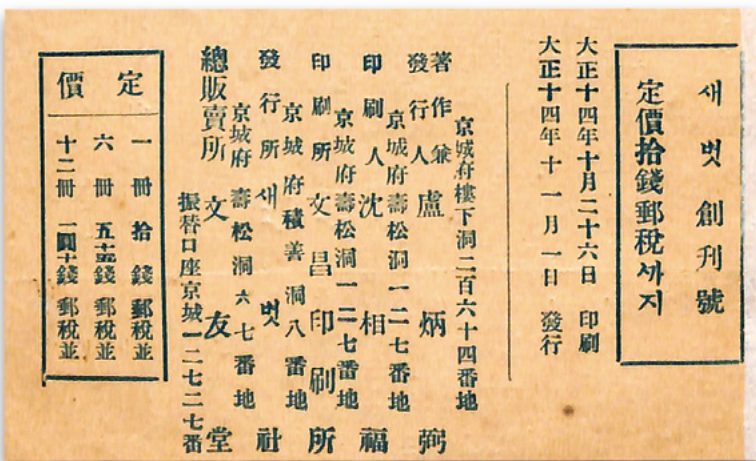 새벗創刊號
定價拾錢郵稅ᄭᅡ지
大正十四年十月二十六日 印刷
大正十四年十一月一日 發行
京城府樓下洞二百六十四番地
著作兼發行人 盧炳弼
京城府壽松洞一二七番地
印刷人 沈相福
京城府壽松洞一二七番地
印刷所 文昌印刷所
京城府積善洞八番地
發行所 새벗社
京城府壽松洞六七番地
總販賣所 文友堂
振替口座京城一二七二七番
定價
一冊 拾錢 郵稅並
六冊 五十五錢 郵稅並
十二冊 一圓十錢 郵稅並